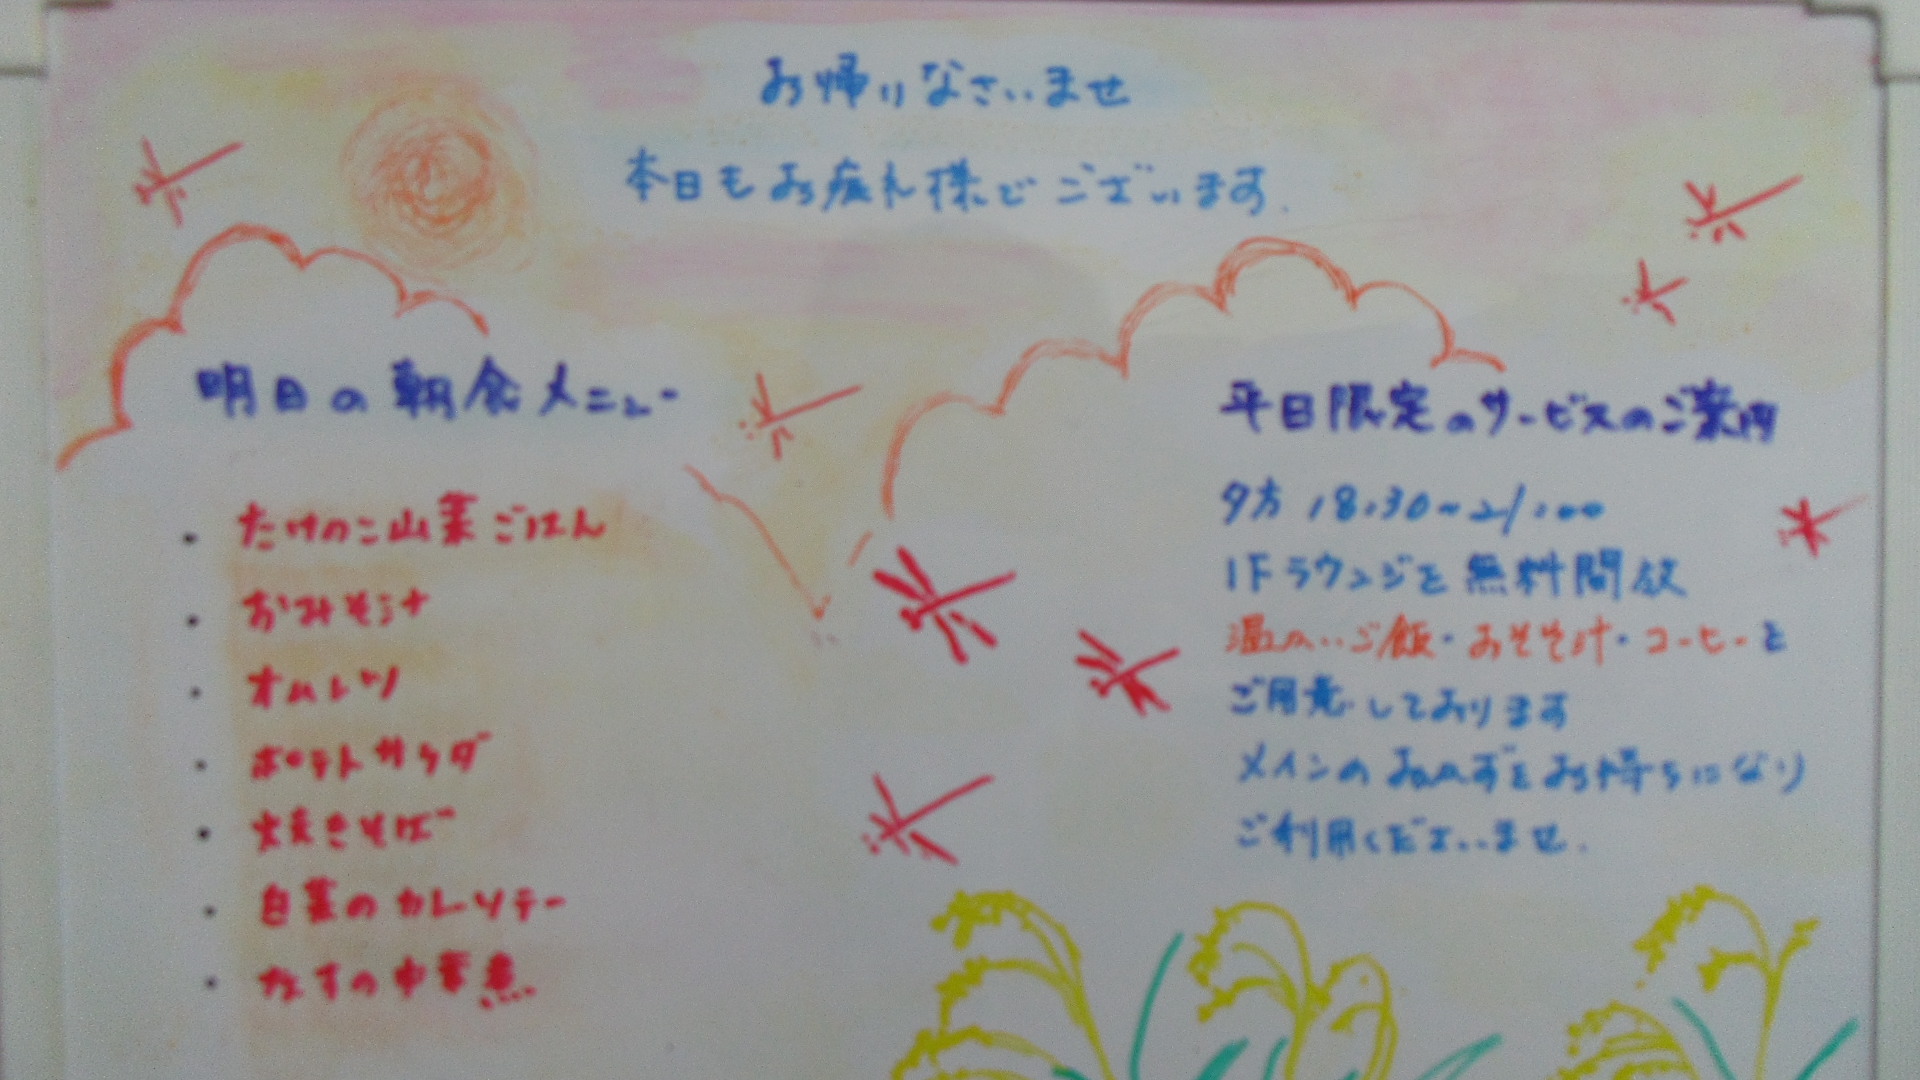 お帰りなさいませ
本日もお疲れ様でございます.
明日の朝食メニュー
・たけのこ山菜ごはん
・おみそ汁
・オムレツ
・ポテトサラダ
・焼きそば
・白菜のカレーソテー
・なすの中華煮
平日限定のサービスのご案内
夕方 18:30~21:00
1Fラウンジを無料開放
温かいご飯・おみそ汁・コーヒーを
ご用意しております
メインのおかずをお持ちになり
ご利用くださいませ.